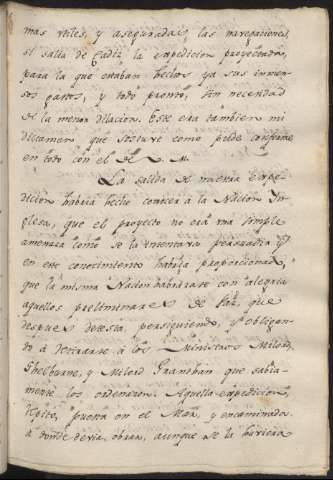 mas utiles, y aseguradas las navegaciones,
si salia de Cadiz la expedicion proyectada,
para la que estaban hechos ya sus inmen-
sos gastos, y todo pronto, sin necesidad
de la menor dilacion. Este era tambien mi
dictamen que sostuve como pude conforme
en todo con el de V. M.
La salida de nuestra Expe-
dicion habria hecho conocer à la Nacion In-
glesa, que el proyecto no era una simple
amenaza como se la intentava persuadir y
en este conocimiento habria proporcionado,
que la misma Nacion habrazase con alegria
aquellos preliminares de Paz, que
despues detesto, persiguiendo, y obligan-
do à retirarse à los Ministros Milord,
Shelburne, y Milord Grandhan que sabia-
mente los ordenaron. Aquella expedicion,
repito, puesta en el Mar, y encaminada
à donde devia obrar, aunque se la huviera